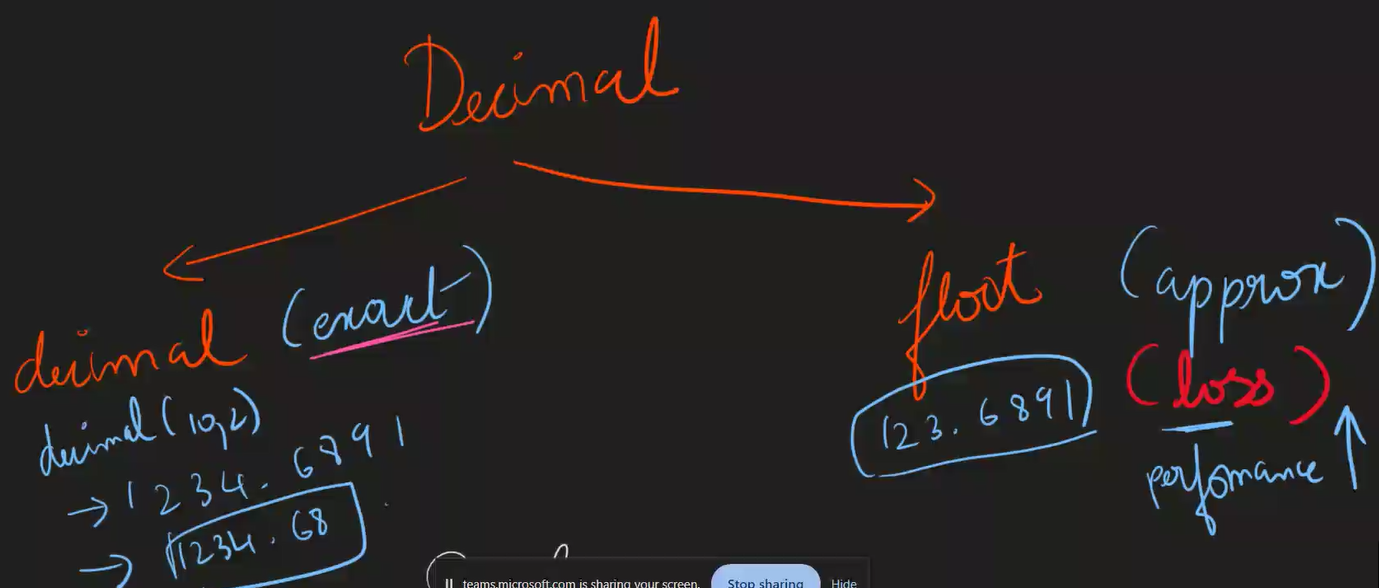 Decimal
decimal (exact)
decimal (10,2)
→ 1234.6891
→ 1234.68
float (approx)
(loss)
123.6891
perfomance ↑
teams.microsoft.com is sharing your screen.
Stop sharing
Hide